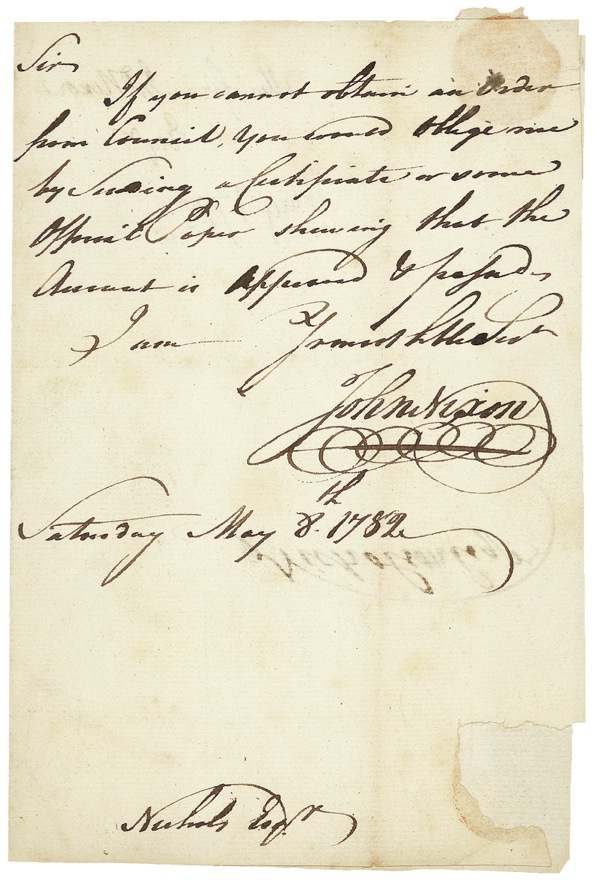 Sir
If you cannot obtain an Order
from Council, you would oblige me
by Sending a Certificate or some
Official Paper shewing that the
Account is approved & passed
I am Yr most hble Sert
John Nixon
Saturday May 8th 1782
Nichols Esqr